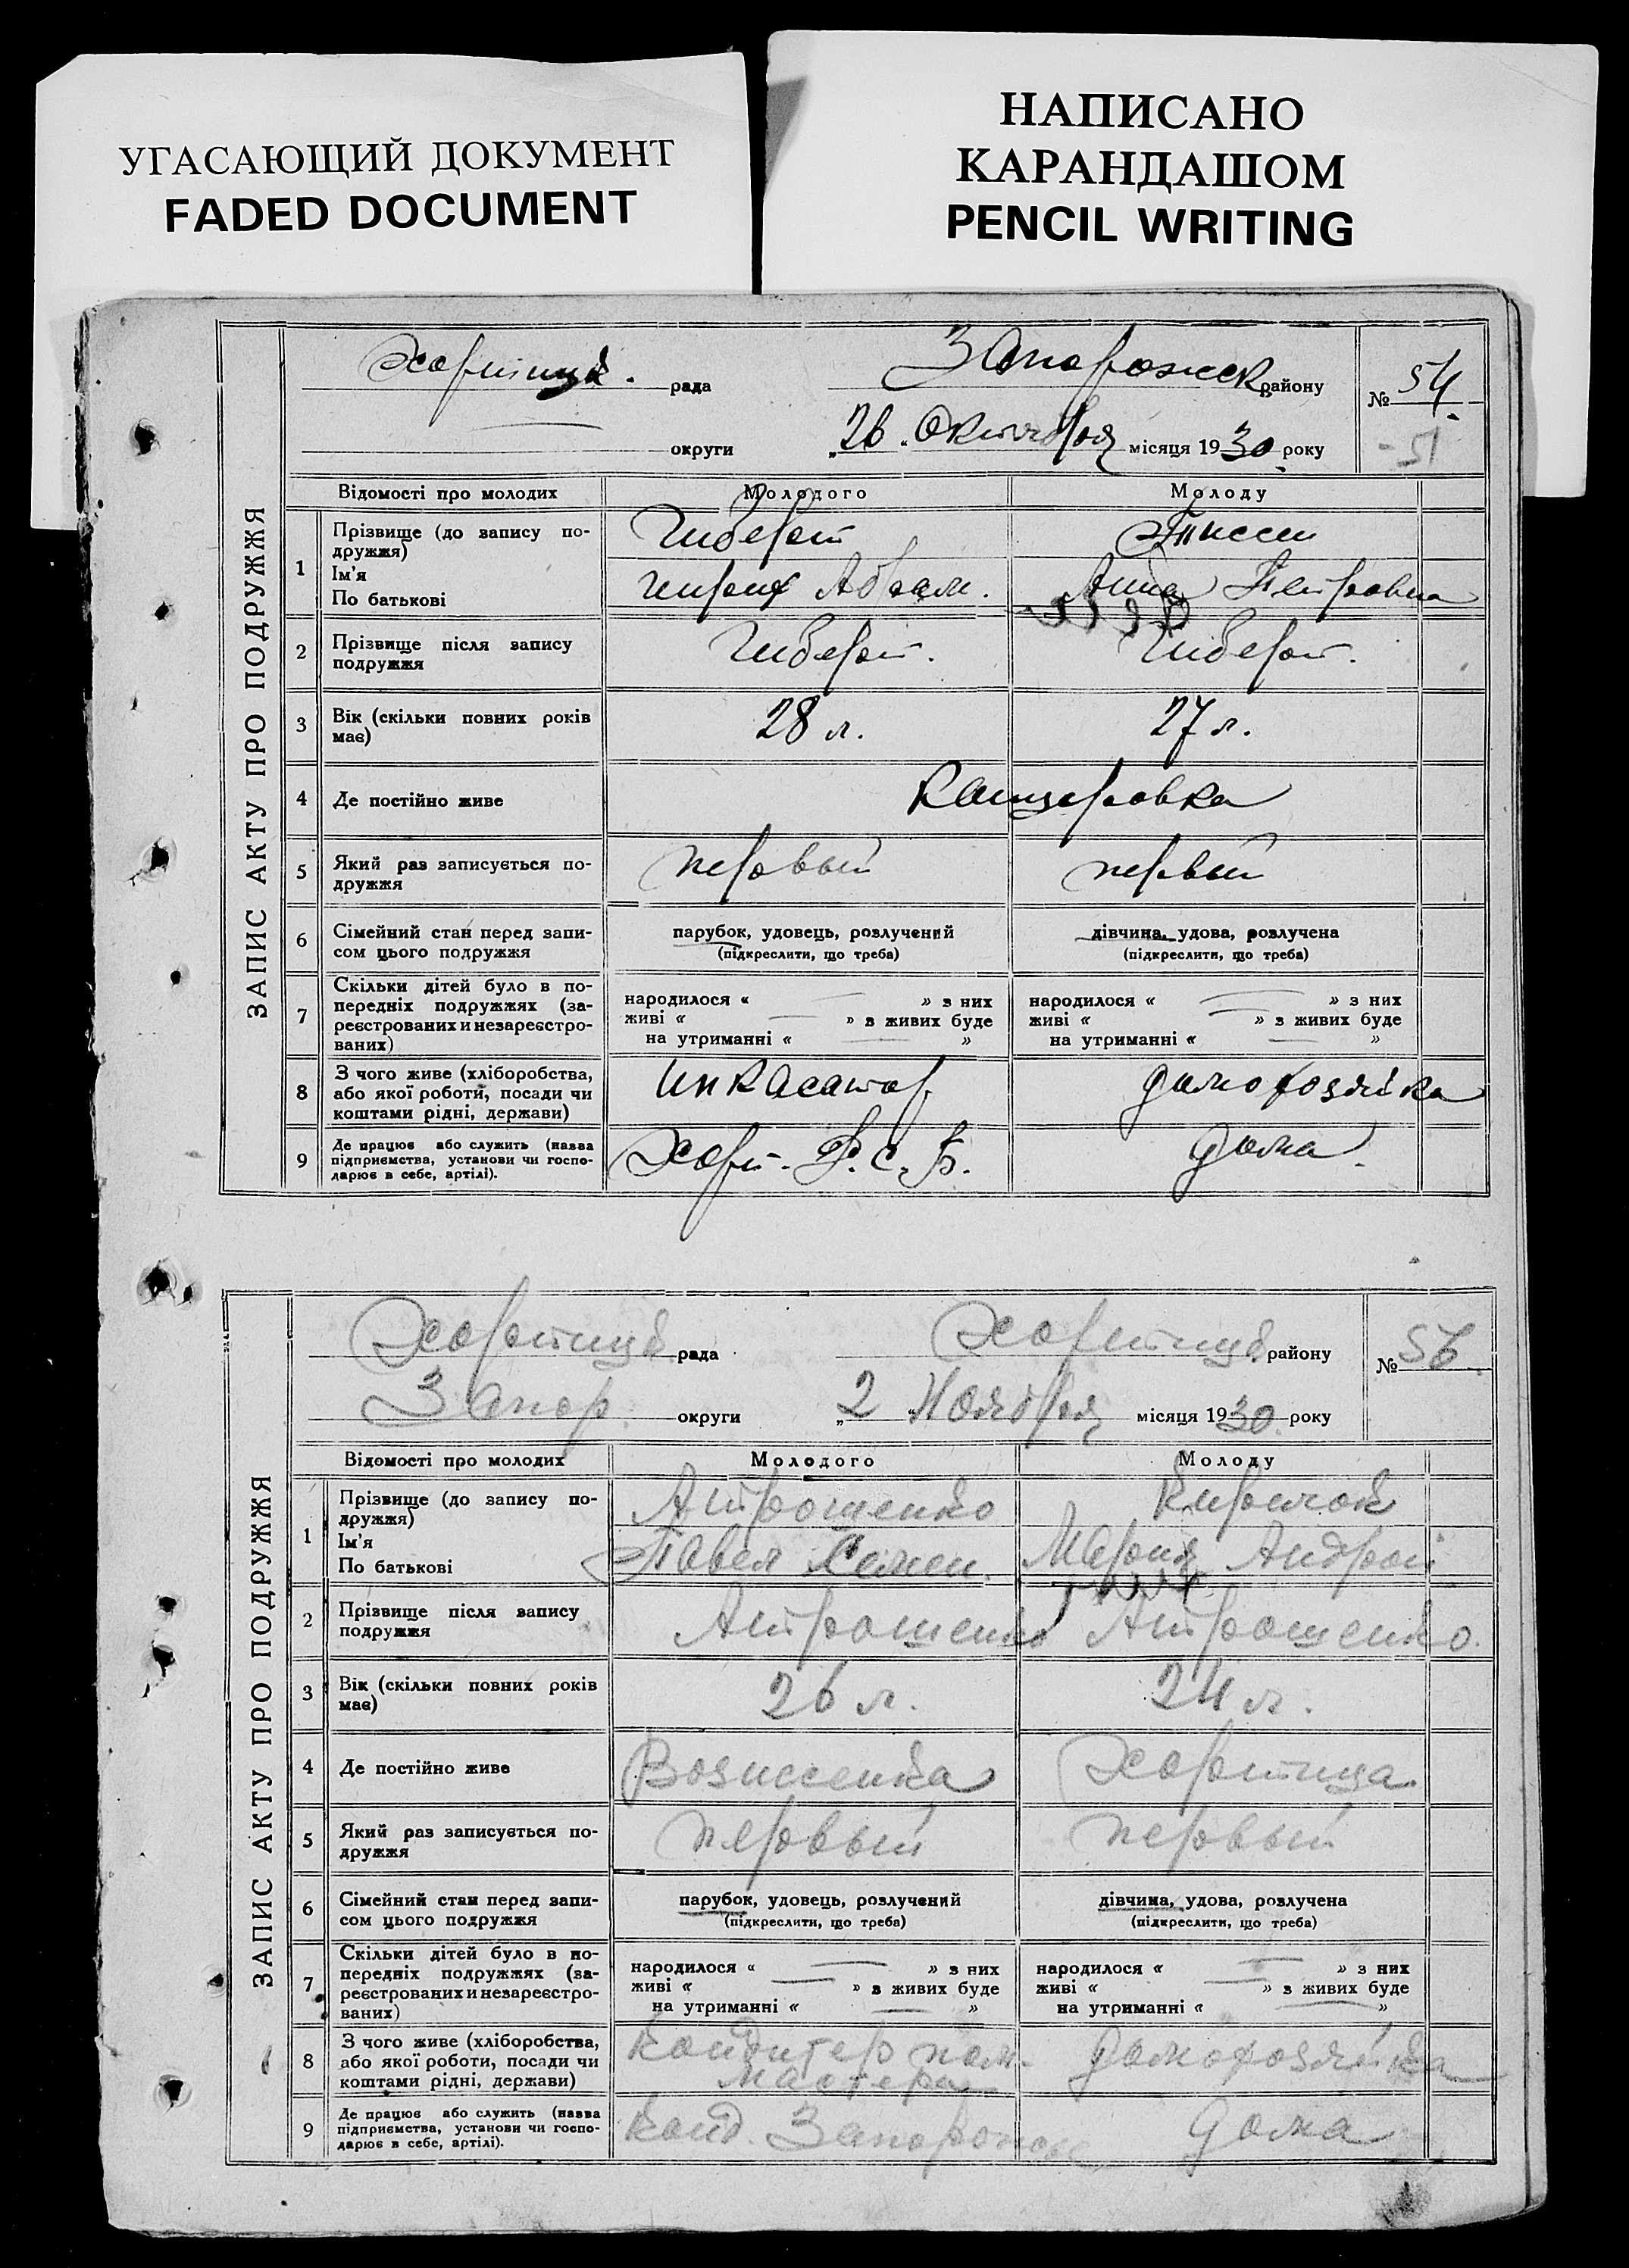 УГАСАЮЩИЙ ДОКУМЕНТ
FADED DOCUMENT
НАПИСАНО
КАРАНДАШОМ
PENCIL WRITING
ЗАПИС АКТУ ПРО ПОДРУЖЖЯ
Хортицк. рада Запорожск району № 54
округи „26“ Октября місяця 1930 року - 51
Відомості про молодих Молодого Молоду
1 Прізвище (до запису по-
дружжя) Гиберт Тиссен
Ім'я
По батькові Абрам. Анна Петровна
2 Прізвище після запису
подружжя Гиберт. Гиберт.
3 Вік (скільки повних років
має) 28 л. 27 л.
4 Де постійно живе Канцеровка
5 Який раз записується по-
дружжя первый первый
6 Сімейний стан перед запи-
сом цього подружжя парубок, удовець, розлучений дівчина, удова, розлучена
(підкреслити, що треба) (підкреслити, що треба)
7 Скільки дітей було в по-
передніх подружжях (за-
реєстрованих и незареєстро-
ваних)
народилося « — » з них народилося « — » з них
живі « — » з живих буде живі « — » з живих буде
на утриманні « — » на утриманні « — »
8 З чого живе (хліборобства,
або якої роботи, посади чи
коштами рідні, держави) инкасатор домохозяйка
9 Де працює або служить (назва
підприємства, установи чи госпо-
дарює в себе, артілі). Хорт. Р. С. Б. дома.
ЗАПИС АКТУ ПРО ПОДРУЖЖЯ
Хортицк рада Хортицк. району № 56
Запор. округи „2“ Ноября місяця 1930. року
Відомості про молодих Молодого Молоду
1 Прізвище (до запису по-
дружжя) Антрошенко Кирпичок
Ім'я
По батькові Павел Семен. Мария Андрей
2 Прізвище після запису
подружжя Антрошенко Антрошенко.
3 Вік (скільки повних років
має) 26 л. 24 л.
4 Де постійно живе Вознесенка Хортица.
5 Який раз записується по-
дружжя первый первый
6 Сімейний стан перед запи-
сом цього подружжя парубок, удовець, розлучений дівчина, удова, розлучена
(підкреслити, що треба) (підкреслити, що треба)
7 Скільки дітей було в по-
передніх подружжях (за-
реєстрованих и незареєстро-
ваних)
народилося « — » з них народилося « — » з них
живі « — » з живих буде живі « — » з живих буде
на утриманні « — » на утриманні « — »
8 З чого живе (хліборобства,
або якої роботи, посади чи
коштами рідні, держави) кондитер пом. домохозяйка
мастера
9 Де працює або служить (назва
підприємства, установи чи госпо-
дарює в себе, артілі). Конд. Запорожск. дома